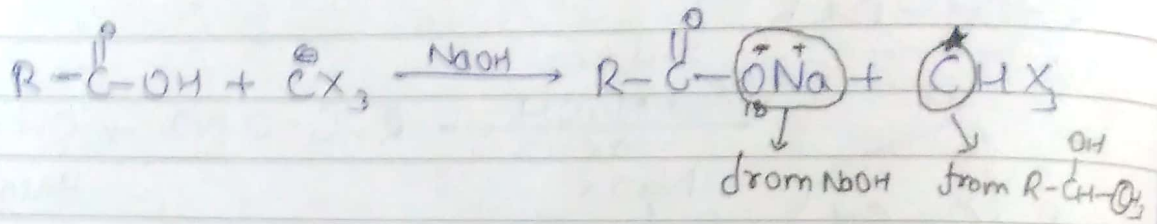 R-C(=O)-OH + C̈⊖X₃ —NaOH→ R-C(=O)-O⁻Na⁺ + C★HX₃
18
drom NaOH from R-CH(OH)-CH₃